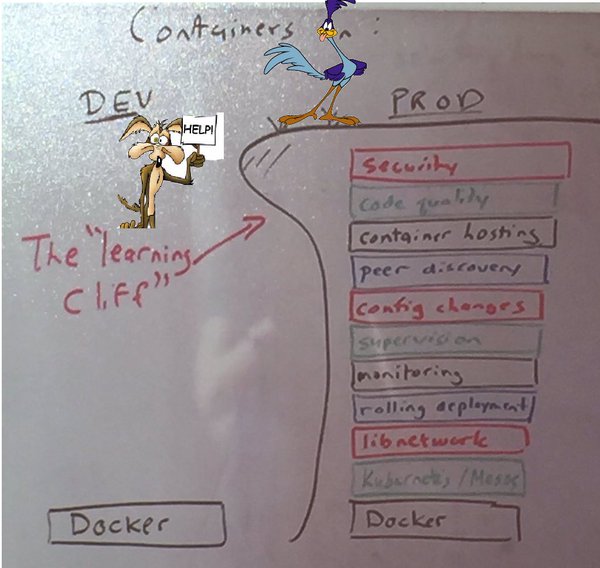 Containers in :
DEV
PROD
HELP!
The "learning
Cliff"
Security
code quality
container hosting
peer discovery
config changes
supervision
monitoring
rolling deployment
libnetwork
Kubernetes / Mesos
Docker
Docker